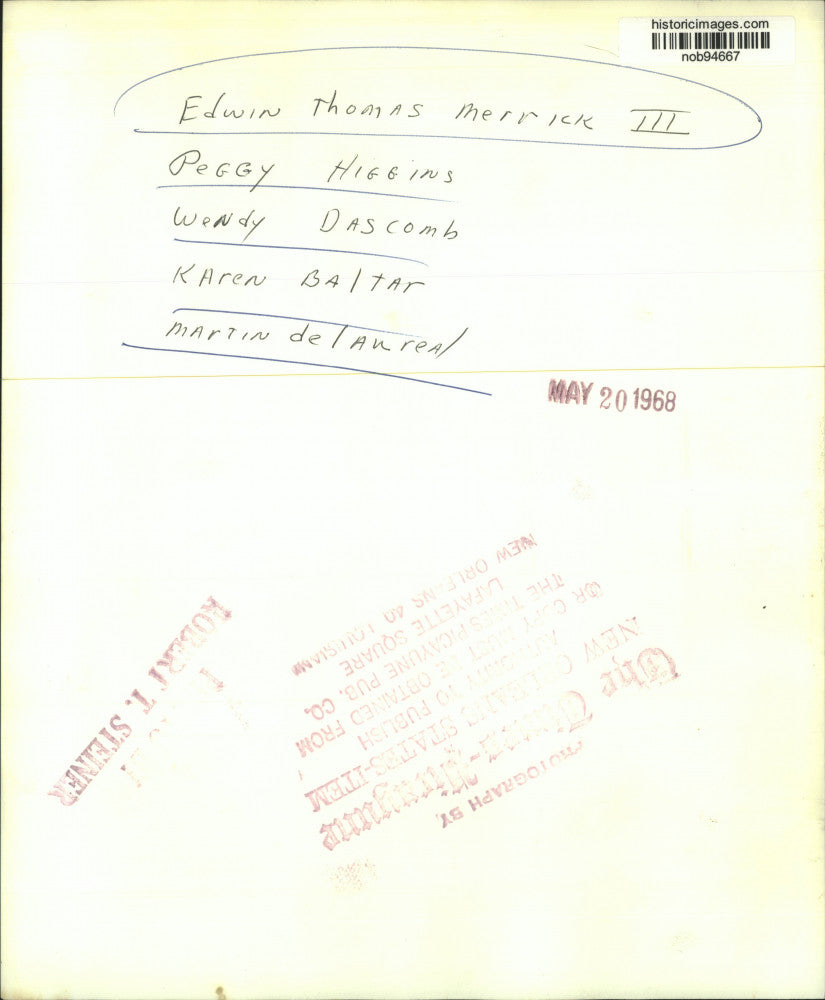 historicimages.com
nob94667
Edwin Thomas Merrick III
Peggy Higgins
Wendy Dascomb
Karen Baltar
Martin delaureal
MAY 20 1968
ROBERT T. STEINER
PHOTOGRAPH BY
The Times-Picayune
NEW ORLEANS STATES-ITEM
AUTHORITY TO PUBLISH
OR COPY MUST BE OBTAINED FROM
THE TIMES PICAYUNE PUB. CO.
LAFAYETTE SQUARE
NEW ORLEANS 40 LOUISIANA